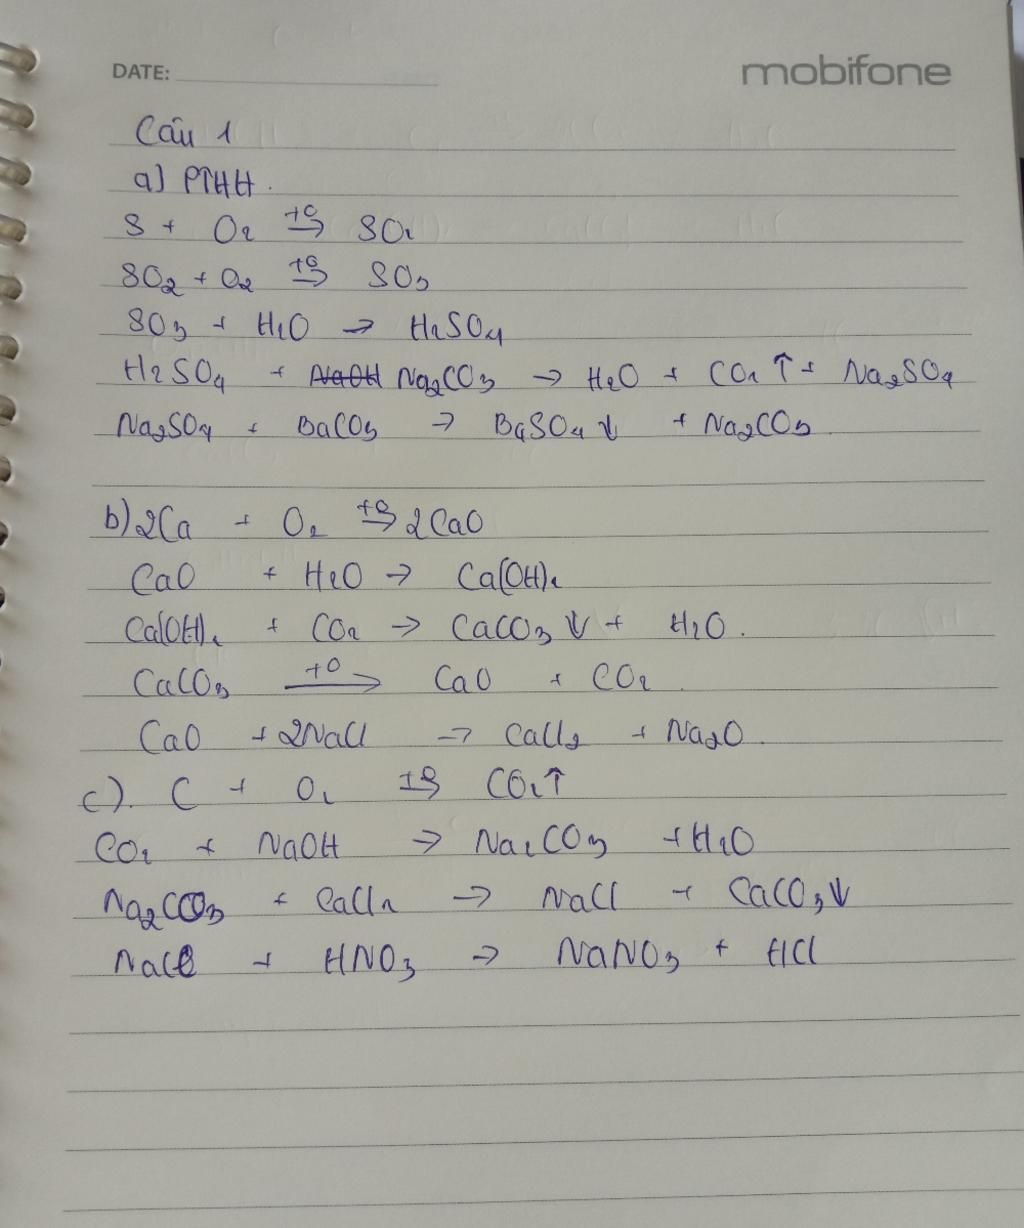 DATE:
mobifone
Câu 1
a) PTHH.
S + O₂ t°→ SO₂
SO₂ + O₂ t°→ SO₃
SO₃ + H₂O → H₂SO₄
H₂SO₄ + NaOH Na₂CO₃ → H₂O + CO₂ ↑ + Na₂SO₄
Na₂SO₄ + BaCO₃ → BaSO₄ ↓ + Na₂CO₃
b) 2Ca + O₂ t°→ 2CaO
CaO + H₂O → Ca(OH)₂
Ca(OH)₂ + CO₂ → CaCO₃ ↓ + H₂O.
CaCO₃ t°→ CaO + CO₂
CaO + 2NaCl → CaCl₂ + Na₂O
c). C + O₂ t°→ CO₂↑
CO₂ + NaOH → Na₂CO₃ + H₂O
Na₂CO₃ + CaCl₂ → NaCl + CaCO₃↓
NaCl + HNO₃ → NaNO₃ + HCl